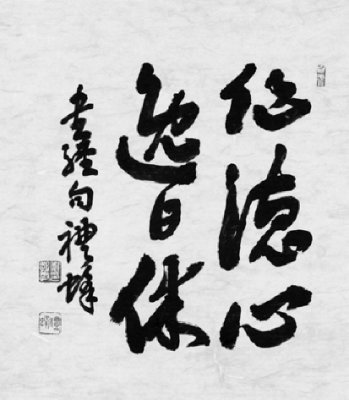 作德心
逸日休
書經句 禮峰